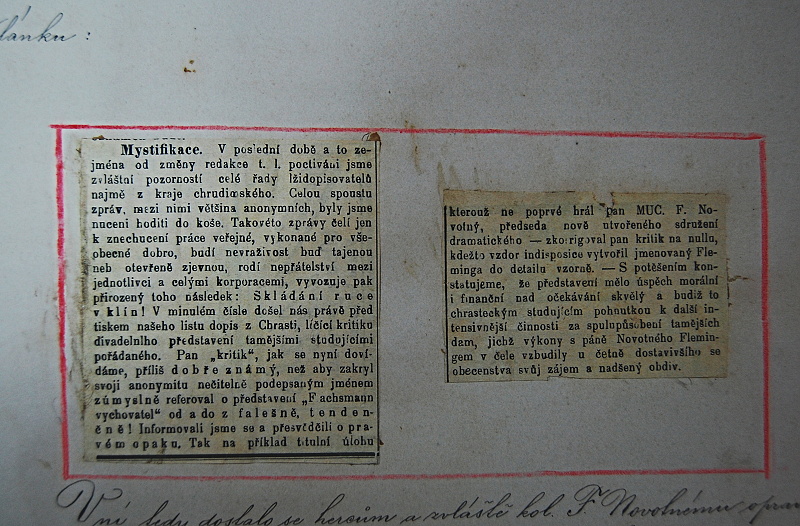 článku :
Mystifikace. V poslední době a to ze-
jména od změny redakce t. l. poctíváni jsme
zvláštní pozorností celé řady lžidopisovatelů
najmě z kraje chrudimského. Celou spoustu
zpráv, mezi nimi většina anonymních, byly jsme
nuceni hoditi do koše. Takovéto zprávy čelí jen
k znechucení práce veřejné, vykonané pro vše-
obecné dobro, budí nevraživost buď tajenou
neb otevřeně zjevnou, rodí nepřátelství mezi
jednotlivci a celými korporacemi, vyvozuje pak
přirozený toho následek: Skládání ruce
v klín! V minulém čísle došel nás právě před
tiskem našeho listu dopis z Chrasti, líčící kritiku
divadelního představení tamějšími studujícími
pořádaného. Pan „kritik“, jak se nyní doví-
dáme, příliš dobře známý, než aby zakryl
svoji anonymitu nečitelně podepsaným jménem
zúmyslně referoval o představení „Flachsmann
vychovatel“ od a do z falešně, tenden-
čně! Informovali jsme se a přesvědčili o pra-
vém opaku. Tak na příklad titulní úlohu
kterouž ne poprvé hrál pan MUC. F. No-
votný, předseda nově utvořeného sdružení
dramatického — zkorigoval pan kritik na nullu,
kdežto vzdor indisposice vytvořil jmenovaný Fle-
minga do detailu vzorně. — S potěšením kon-
statujeme, že představení mělo úspěch morální
i finanční nad očekávání skvělý a budiž to
chrasteckým studujícím pohnutkou k další in-
tensivnější činnosti za spolupůsobení tamějších
dam, jichž výkony s páně Novotného Flemin-
gem v čele vzbudily u četně dostavivšího se
obecenstva svůj zájem a nadšený obdiv.
V ní tedy dostalo se hercům a zvláště kol. F. Novotnému